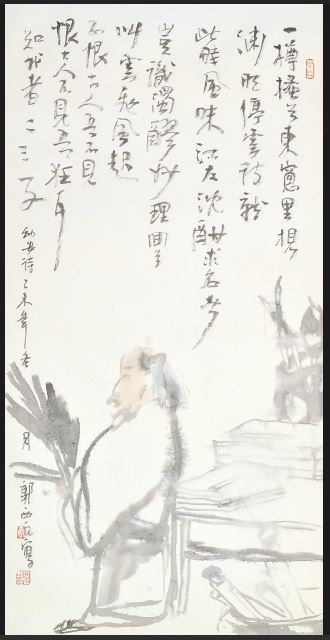 一樽搔首東窗里想
渊明停雲詩就
此時風味江左沈酣求名者
豈識濁醪妙理回首
叫雲飛風起
不恨古人吾不見
恨古人不見吾狂耳
知我者二三子
幼安詩乙未年冬月郭西元寫